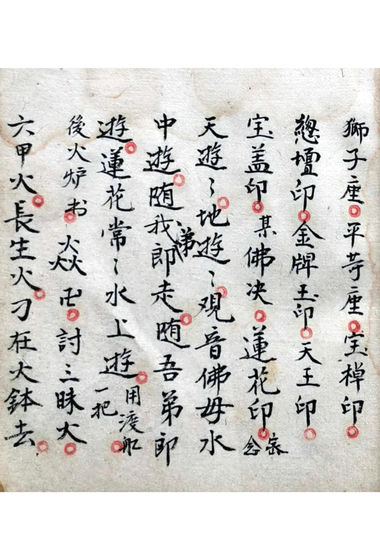 獅子座平等座宝樟印
總壇印金牌玉印天王印
宝盖印某佛决蓮花印
天遊〻地遊〻观音佛母水
中遊随我弟郎走随吾弟郎
遊蓮花常〻水上遊用渡船一把
後火炉书焱卍討三昧火
六甲火長生火刁在火鉢去